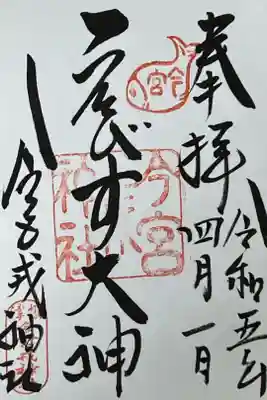 奉拝
令和五年
四月一日
今宮
ゑびす大神
今宮神社
今宮戎神社